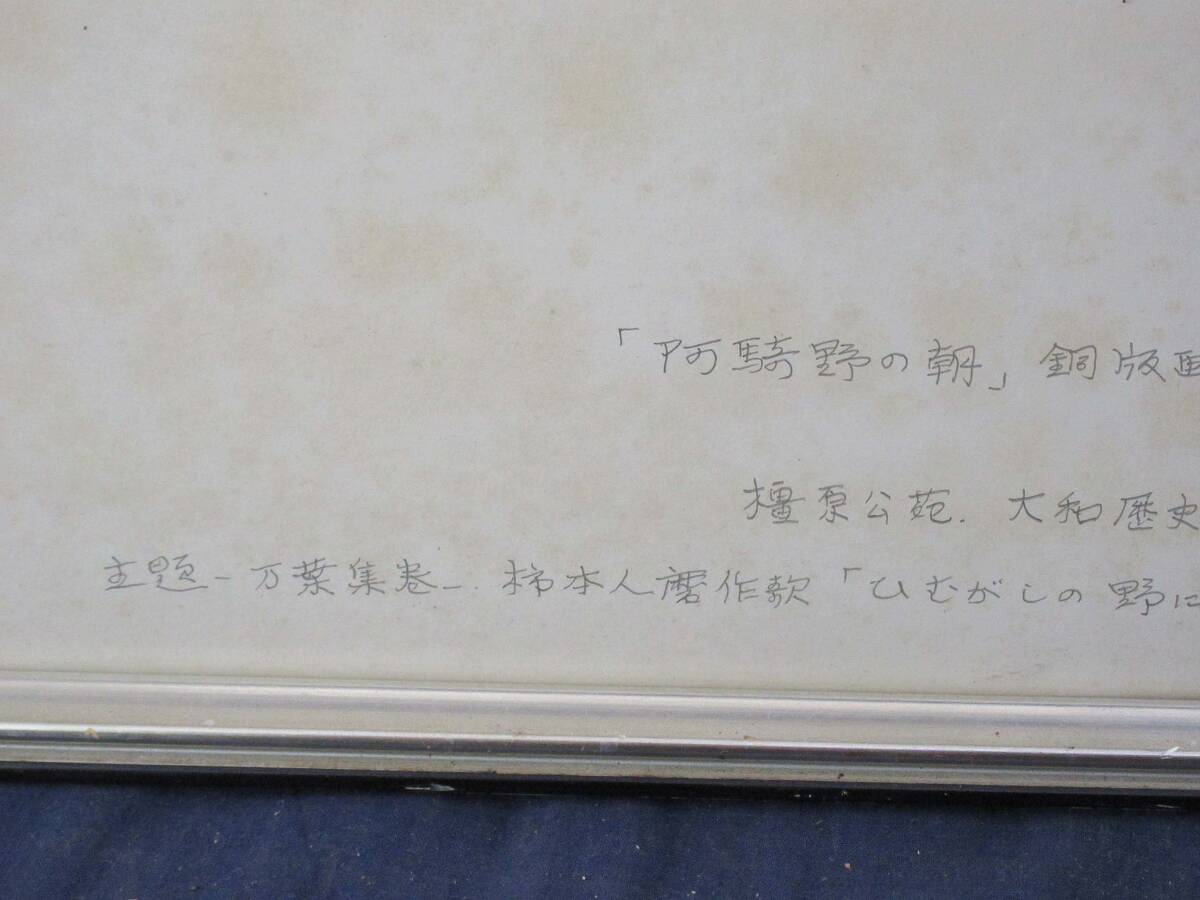 「阿騎野の朝」 銅版画
橿原公苑. 大和歴史
主題－万葉集巻一. 柿本人麿作歌「ひむがしの野に